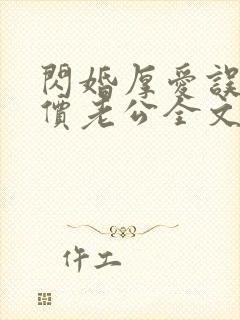 閃婚厚愛誤
價老公全文
仵工